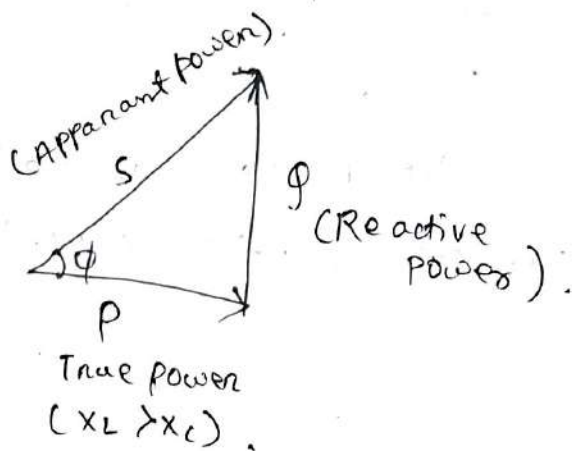 (Apparant power).
S
Q
(Reactive
power).
φ
P
True power
(XL > XC).